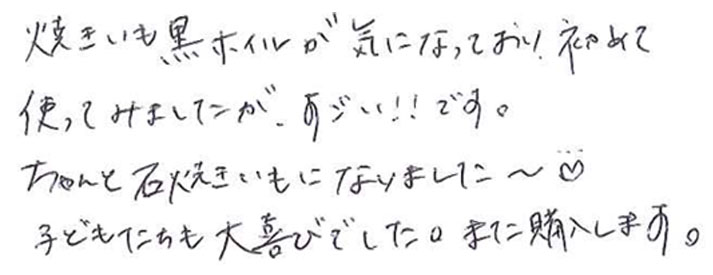 焼きいも黒ホイルが気になっており、初めて
使ってみましたが、すごい!!です。
ちゃんと石焼きいもになりました〜♡
子どもたちも大喜びでした。また購入します。